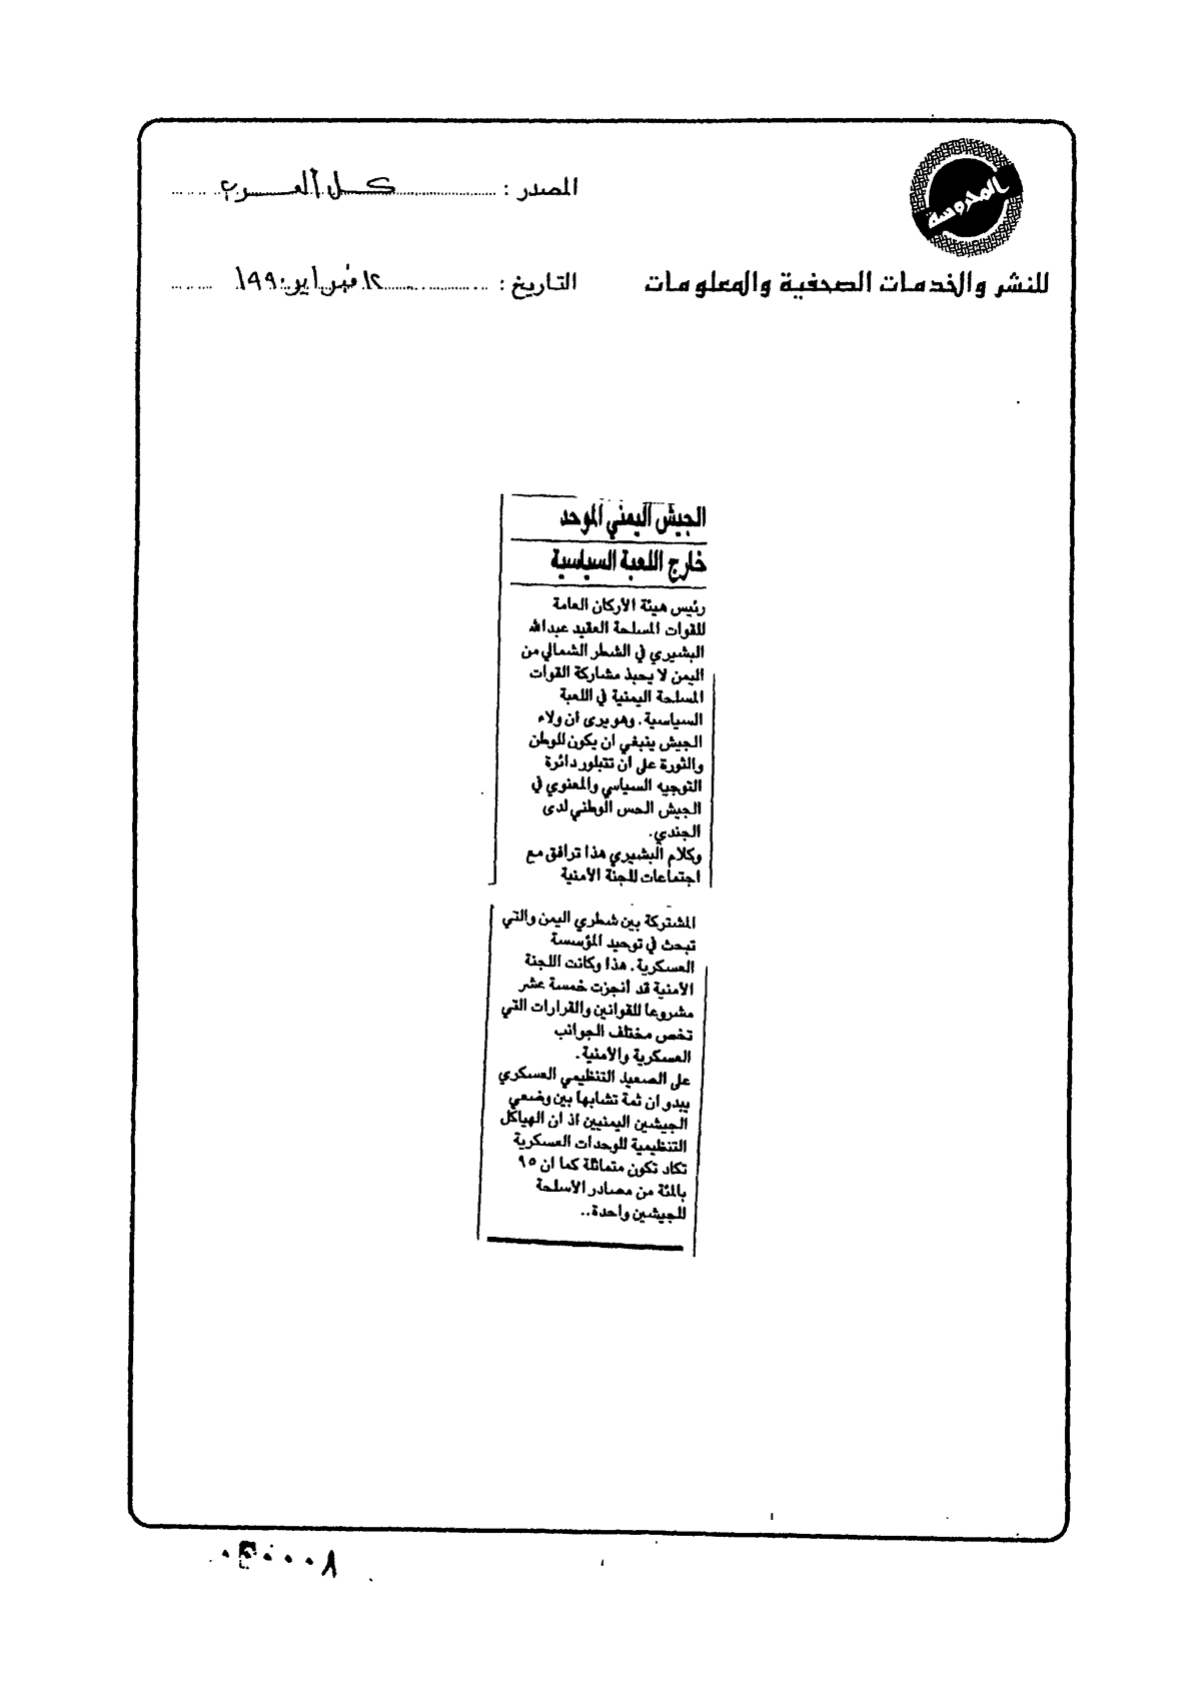 المحروسة
للنشر والخدمات الصحفية والمعلومات
المصدر : كل العرب
التاريخ : ١٢ فبراير ١٩٩٠
الجيش اليمني الموحد
خارج اللعبة السياسية
رئيس هيئة الأركان العامة
للقوات المسلحة العقيد عبدالله
البشيري في الشطر الشمالي من
اليمن لا يحبذ مشاركة القوات
المسلحة اليمنية في اللعبة
السياسية. وهو يرى ان ولاء
الجيش ينبغي ان يكون للوطن
والثورة على ان تتبلور دائرة
التوجيه السياسي والمعنوي في
الجيش الحس الوطني لدى
الجندي.
وكلام البشيري هذا ترافق مع
اجتماعات للجنة الأمنية
المشتركة بين شطري اليمن والتي
تبحث في توحيد المؤسسة
العسكرية. هذا وكانت اللجنة
الأمنية قد أنجزت خمسة عشر
مشروعا للقوانين والقرارات التي
تخص مختلف الجوانب
العسكرية والأمنية.
على الصعيد التنظيمي العسكري
يبدو ان ثمة تشابها بين وضعي
الجيشين اليمنيين اذ ان الهياكل
التنظيمية للوحدات العسكرية
تكاد تكون متماثلة كما ان ٩٥
بالمئة من مصادر الأسلحة
للجيشين واحدة..